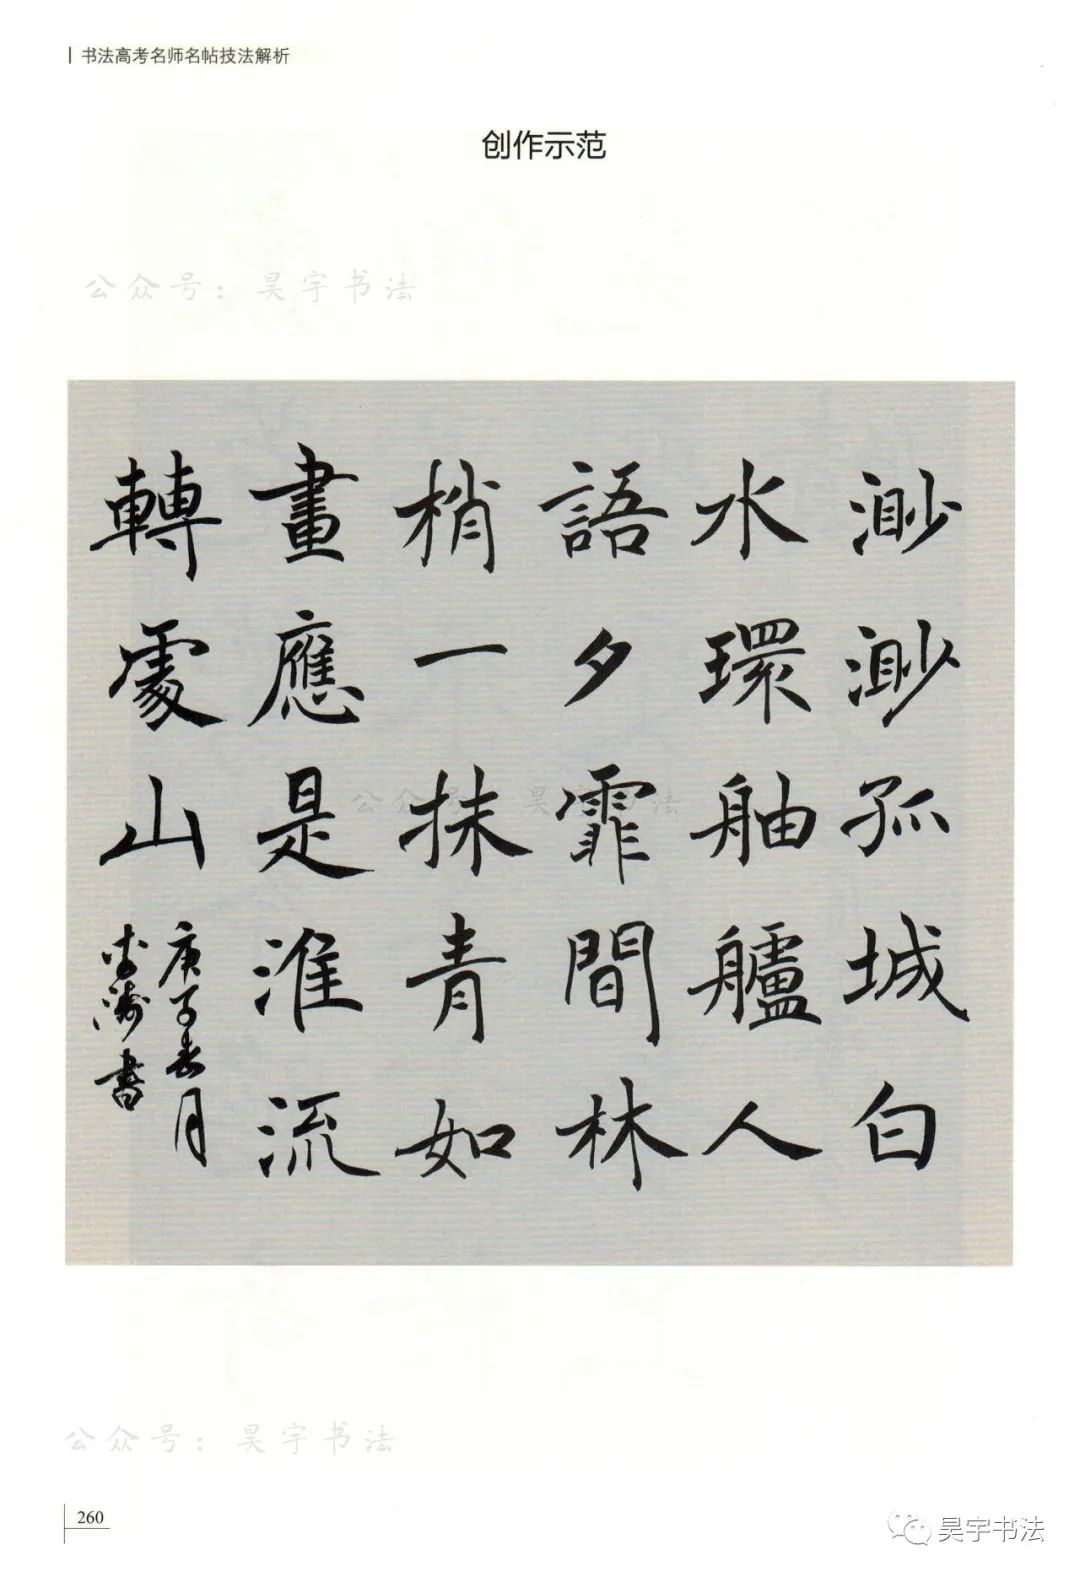 书法高考名师名帖技法解析
创作示范
公众号：昊宇书法
渺渺孤城白
水環舳艫人
語夕霏間林
梢一抹青如
畫應是淮流
轉處山
庚子春月
书
公众号：昊宇书法
公众号：昊宇书法
260
昊宇书法